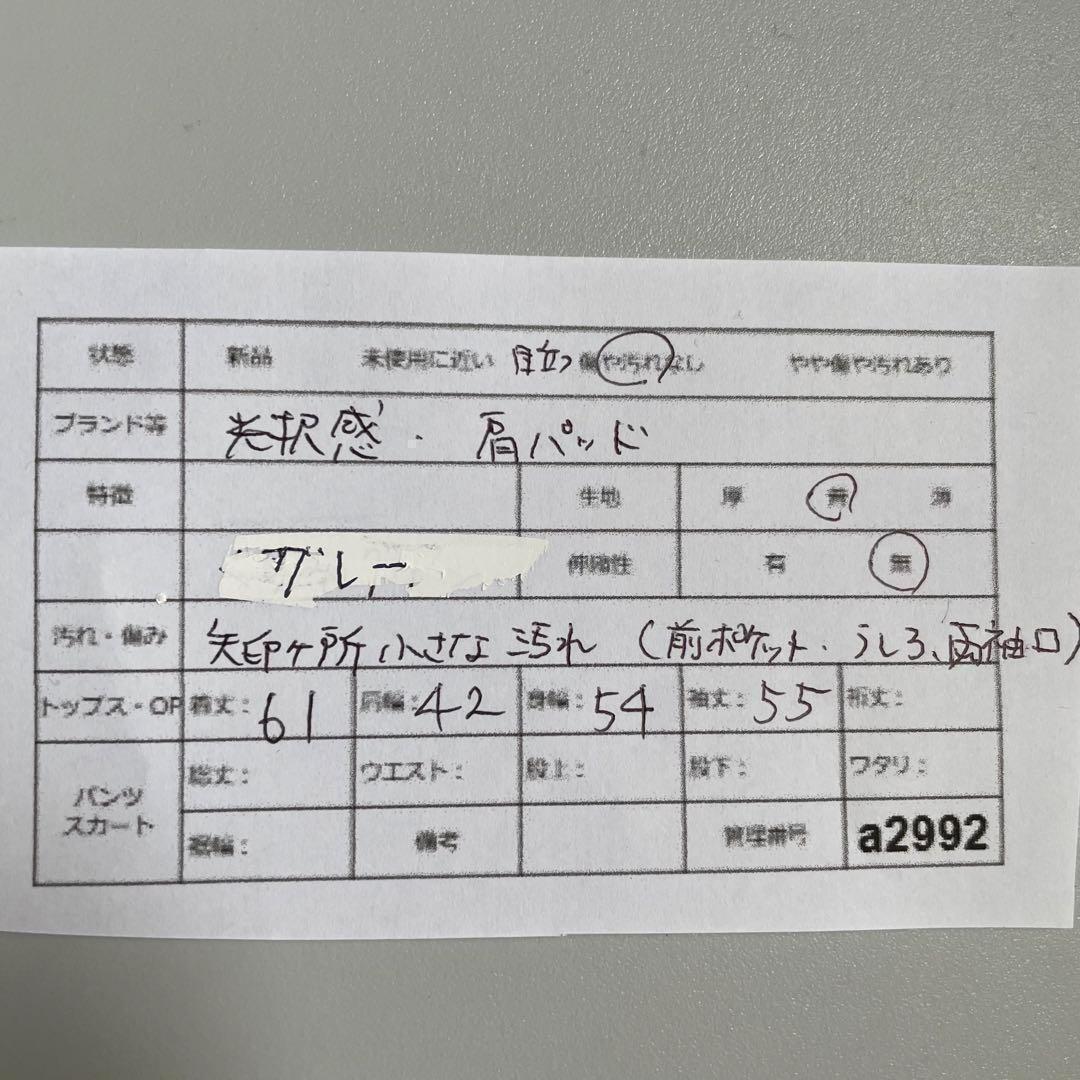 状態 新品 未使用に近い 目立つ傷や汚れなし やや傷や汚れあり
ブランド等 光択感・ 肩パッド
特徴 生地 厚 普 薄
グレー 伸縮性 有 無
汚れ・傷み 矢印ヶ所小さな汚れ (前ポケット・うしろ、両袖口)
トップス・OP 着丈: 61 肩幅: 42 身幅: 54 袖丈: 55 裄丈:
パンツ スカート 総丈: ウエスト: 股上: 股下: ワタリ:
裾幅: 備考 管理番号 a2992